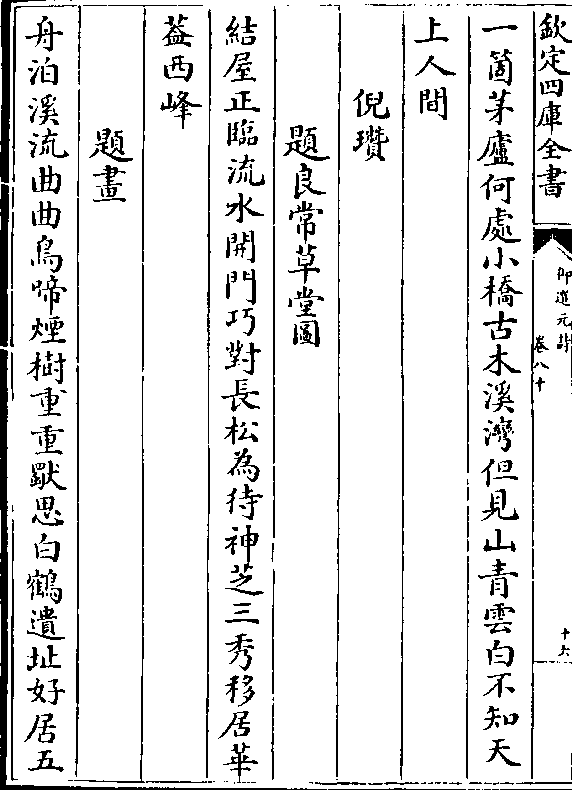 欽定四庫全書
御選元詩
卷八十
十六
一箇茅廬何處小橋古木溪灣但見山青雲白不知天
上人間
倪瓚
題良常草堂圖
結屋正臨流水開門巧對長松為待神芝三秀移居華
葢西峰
題畫
舟泊溪流曲曲鳥啼煙樹重重歘思白鶴遺址好居五